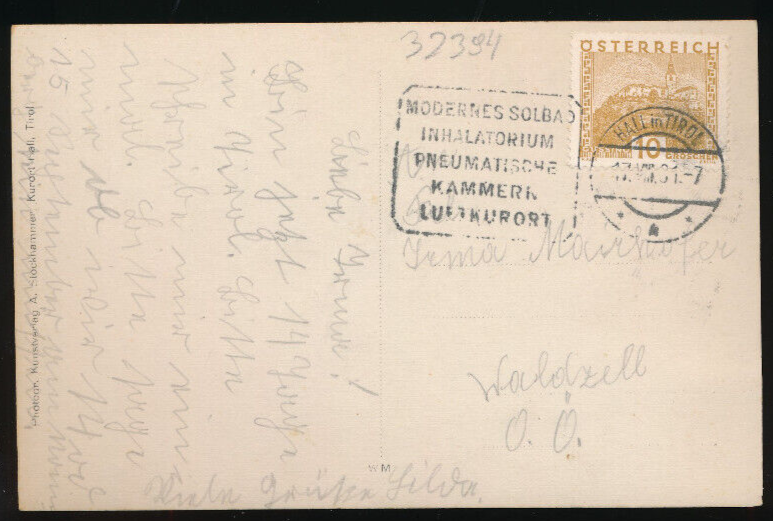 32394
ÖSTERREICH
10
GROSCHEN
HALL in TIROL
MODERNES SOLBAD
INHALATORIUM
PNEUMATISCHE
KAMMERN
LUFTKURORT
Irma Mairhofer
Waldzell
O. Ö.
Liebe Irma!
Bin jetzt 14 Tage
in Tirol. Bitte
schreibe mir ein
mal. Bitte sage
mir ob wir 14 od
15 September
Viele Grüße Hilda.
WM
Photogr. Kunstverlag A. Stockhammer, Kurort Hall, Tirol